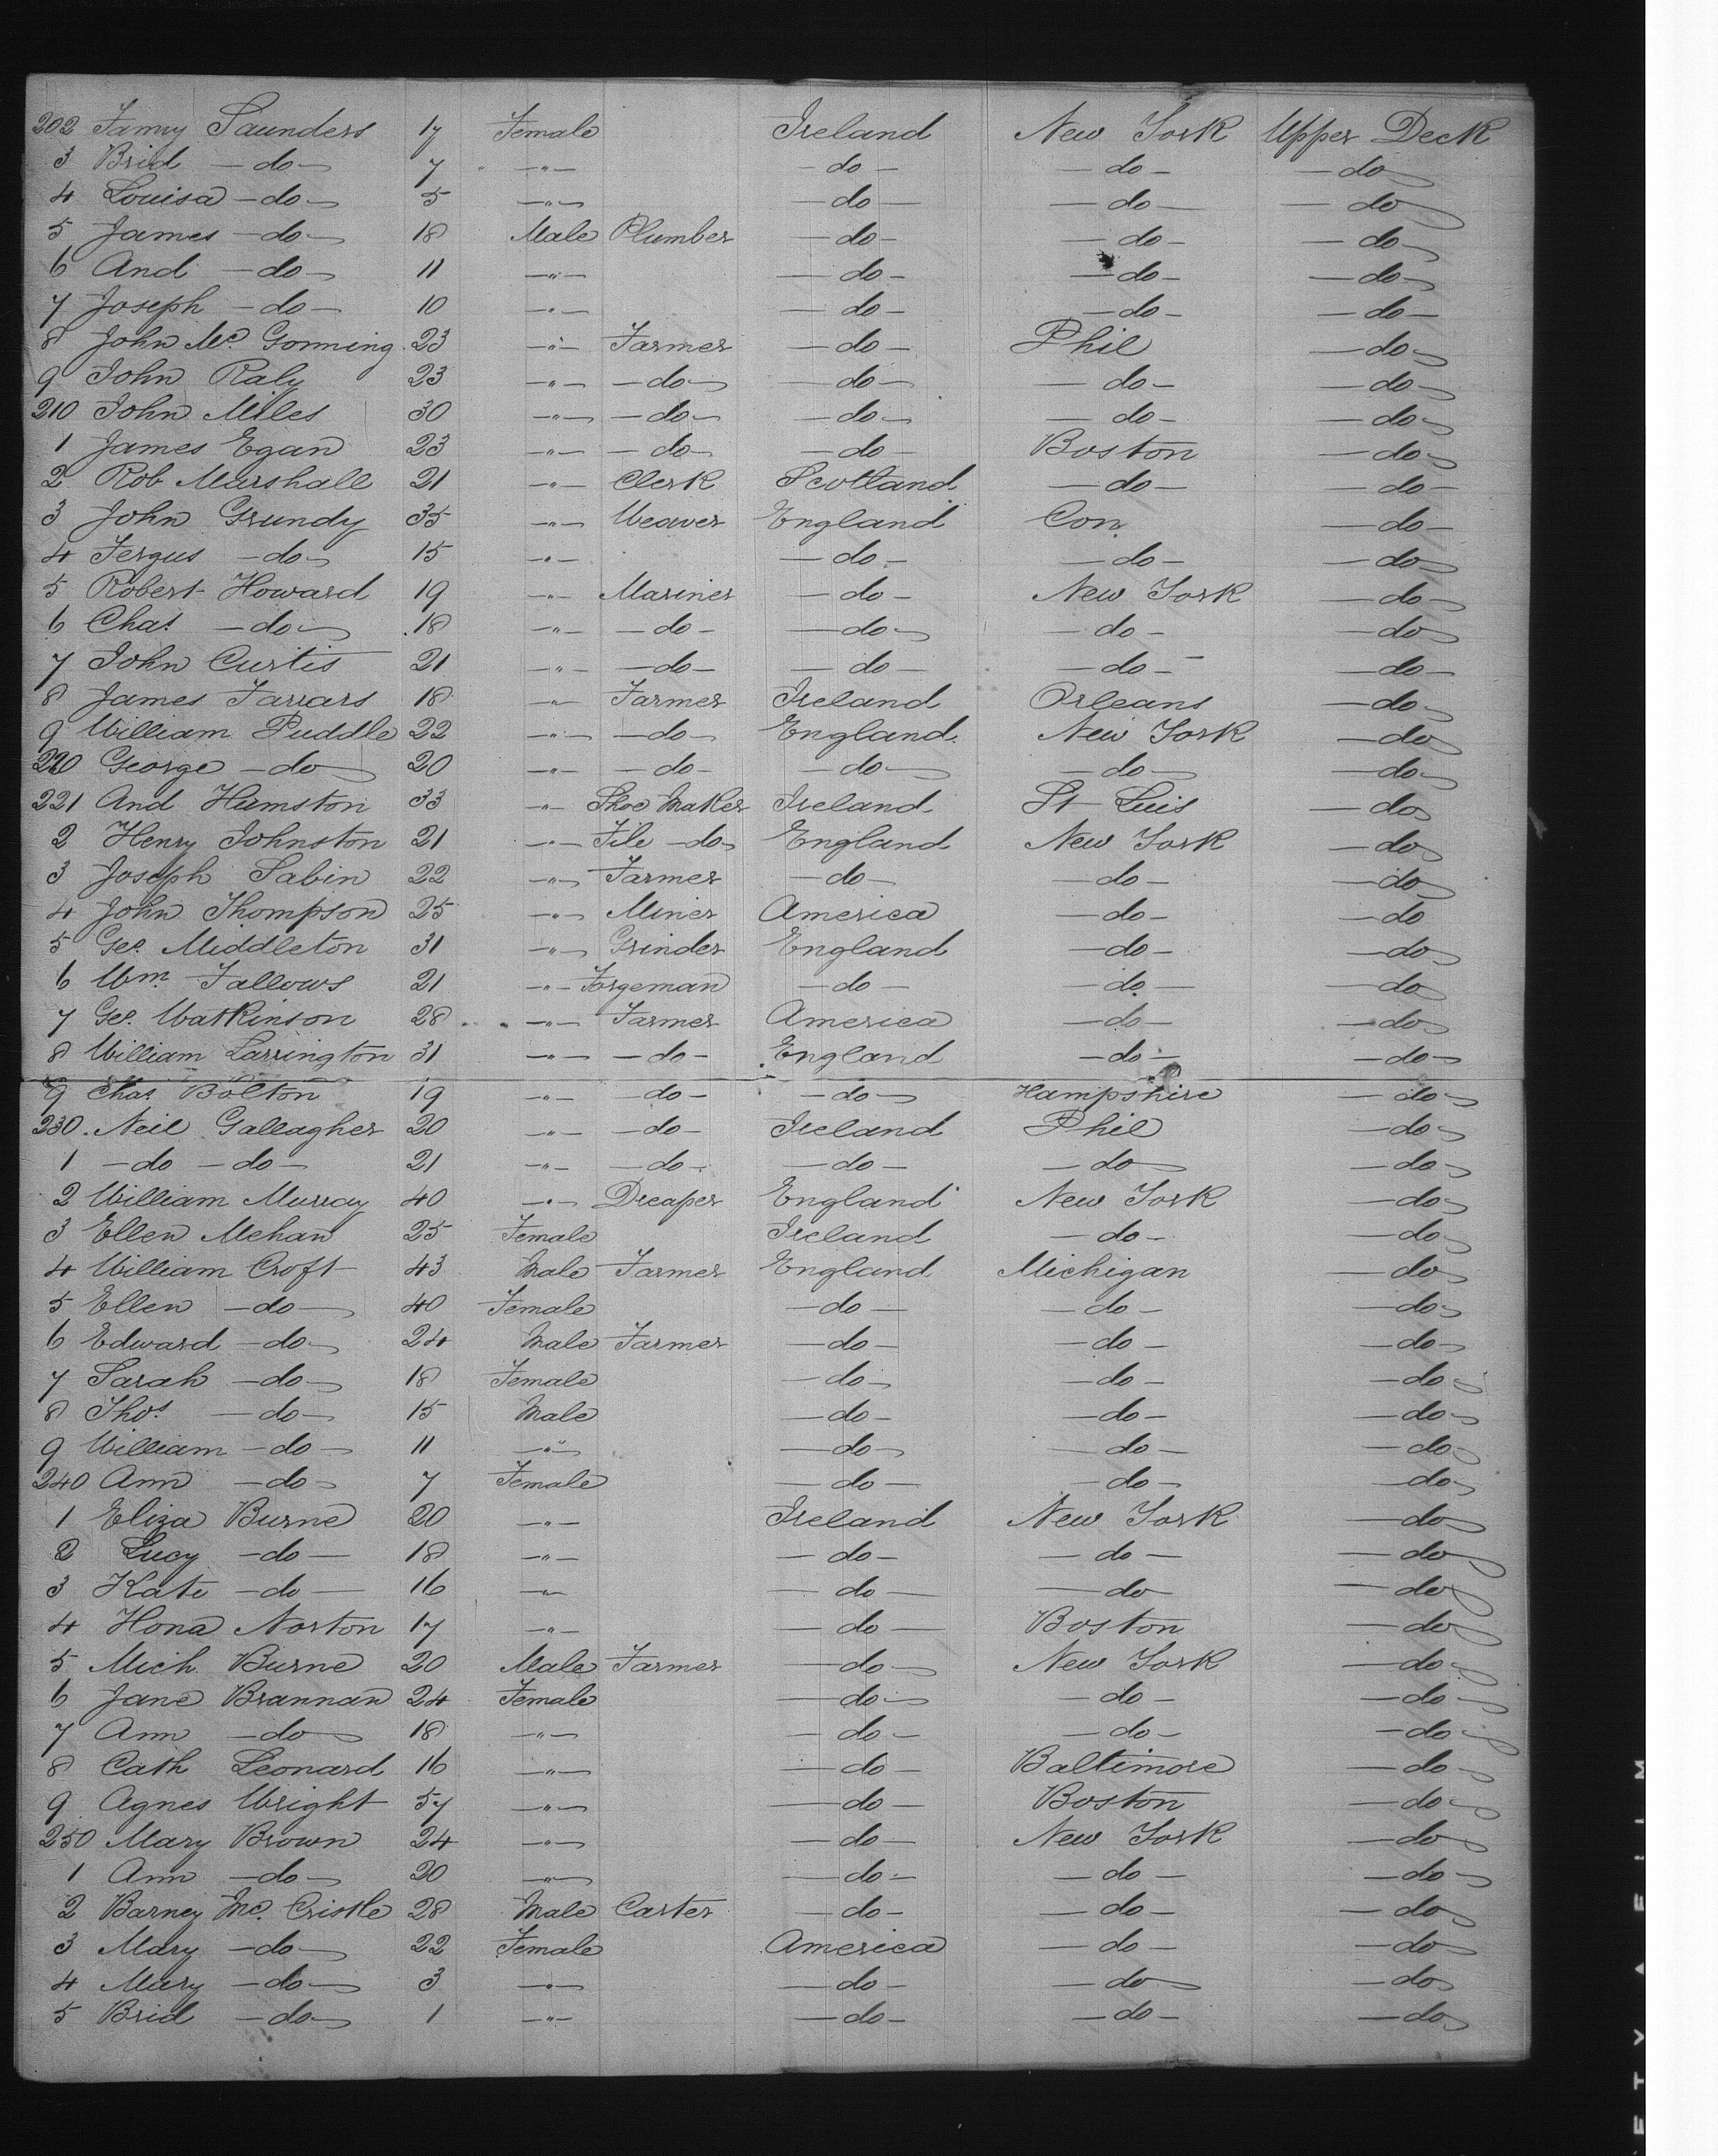 202 Fanny Saunders 17 Female Ireland New York Upper Deck
3 Brid -do- 7 -"- -do- -do- -do-
4 Louisa -do- 5 -"- -do- -do- -do-
5 James -do- 18 Male Plumber -do- -do- -do-
6 And -do- 11 -"- -do- -do- -do-
7 Joseph -do- 10 -"- -do- -do- -do-
8 John Mc. Gonning 23 -"- Farmer -do- Phil -do-
9 John Raly 23 -"- -do- -do- -do- -do-
210 John Miles 30 -"- -do- -do- -do- -do-
1 James Egan 23 -"- -do- -do- Boston -do-
2 Rob Marshall 21 -"- Clerk Scotland -do- -do-
3 John Grundy 35 -"- Weaver England Con. -do-
4 Fergus -do- 15 -"- -do- -do- -do-
5 Robert Howard 19 -"- Mariner -do- New York -do-
6 Chas. -do- 18 -"- -do- -do- -do- -do-
7 John Curtis 21 -"- -do- -do- -do- -do-
8 James Farrars 18 -"- Farmer Ireland Orleans -do-
9 William Puddle 22 -"- -do- England New York -do-
220 George -do- 20 -"- -do- -do- -do- -do-
221 And Humston 33 -"- Shoe Maker Ireland St Luis -do-
2 Henry Johnston 21 -"- File -do- England New York -do-
3 Joseph Sabin 22 -"- Farmer -do- -do- -do-
4 John Thompson 25 -"- Miner America -do- -do
5 Geo. Middleton 31 -"- Grinder England -do- -do-
6 Wm. Fallows 21 -"- Forgeman -do- -do- -do-
7 Geo. Watkinson 28 -"- Farmer America -do- -do-
8 William Larrington 31 -"- -do- England -do- -do-
9 Chas Bolton 19 -"- -do- -do- Hampshire -do-
230 Neil Gallagher 20 -"- -do- Ireland Phil -do-
1 -do -do- 21 -"- -do- -do- -do- -do-
2 William Murray 40 -"- Dreaper England New York -do-
3 Ellen Mehan 25 Female Ireland -do- -do-
4 William Croft 43 Male Farmer England Michigan -do-
5 Ellen -do- 40 Female -do- -do- -do-
6 Edward -do- 24 Male Farmer -do- -do- -do-
7 Sarah -do- 18 Female -do- -do- -do-
8 Thos. -do- 15 Male -do- -do- -do-
9 William -do- 11 -"- -do- -do- -do-
240 Ann -do- 7 Female -do- -do- -do-
1 Eliza Burne 20 -"- Ireland New York -do-
2 Lucy -do- 18 -"- -do- -do- -do-
3 Kate -do- 16 -"- -do- -do- -do-
4 Hona Norton 17 -"- -do- Boston -do-
5 Mich Burne 20 Male Farmer -do- New York -do-
6 Jane Brannan 24 Female -do- -do- -do-
7 Ann -do- 18 -"- -do- -do- -do-
8 Cath Leonard 16 -"- -do- Baltimore -do-
9 Agnes Wright 57 -"- -do- Boston -do-
250 Mary Brown 24 -"- -do- New York -do-
1 Ann -do- 20 -"- -do- -do- -do-
2 Barney Mc. Cristle 28 Male Carter -do- -do- -do-
3 Mary -do- 22 Female America -do- -do-
4 Mary -do- 3 -"- -do- -do- -do-
5 Brid -do- 1 -"- -do- -do- -do-